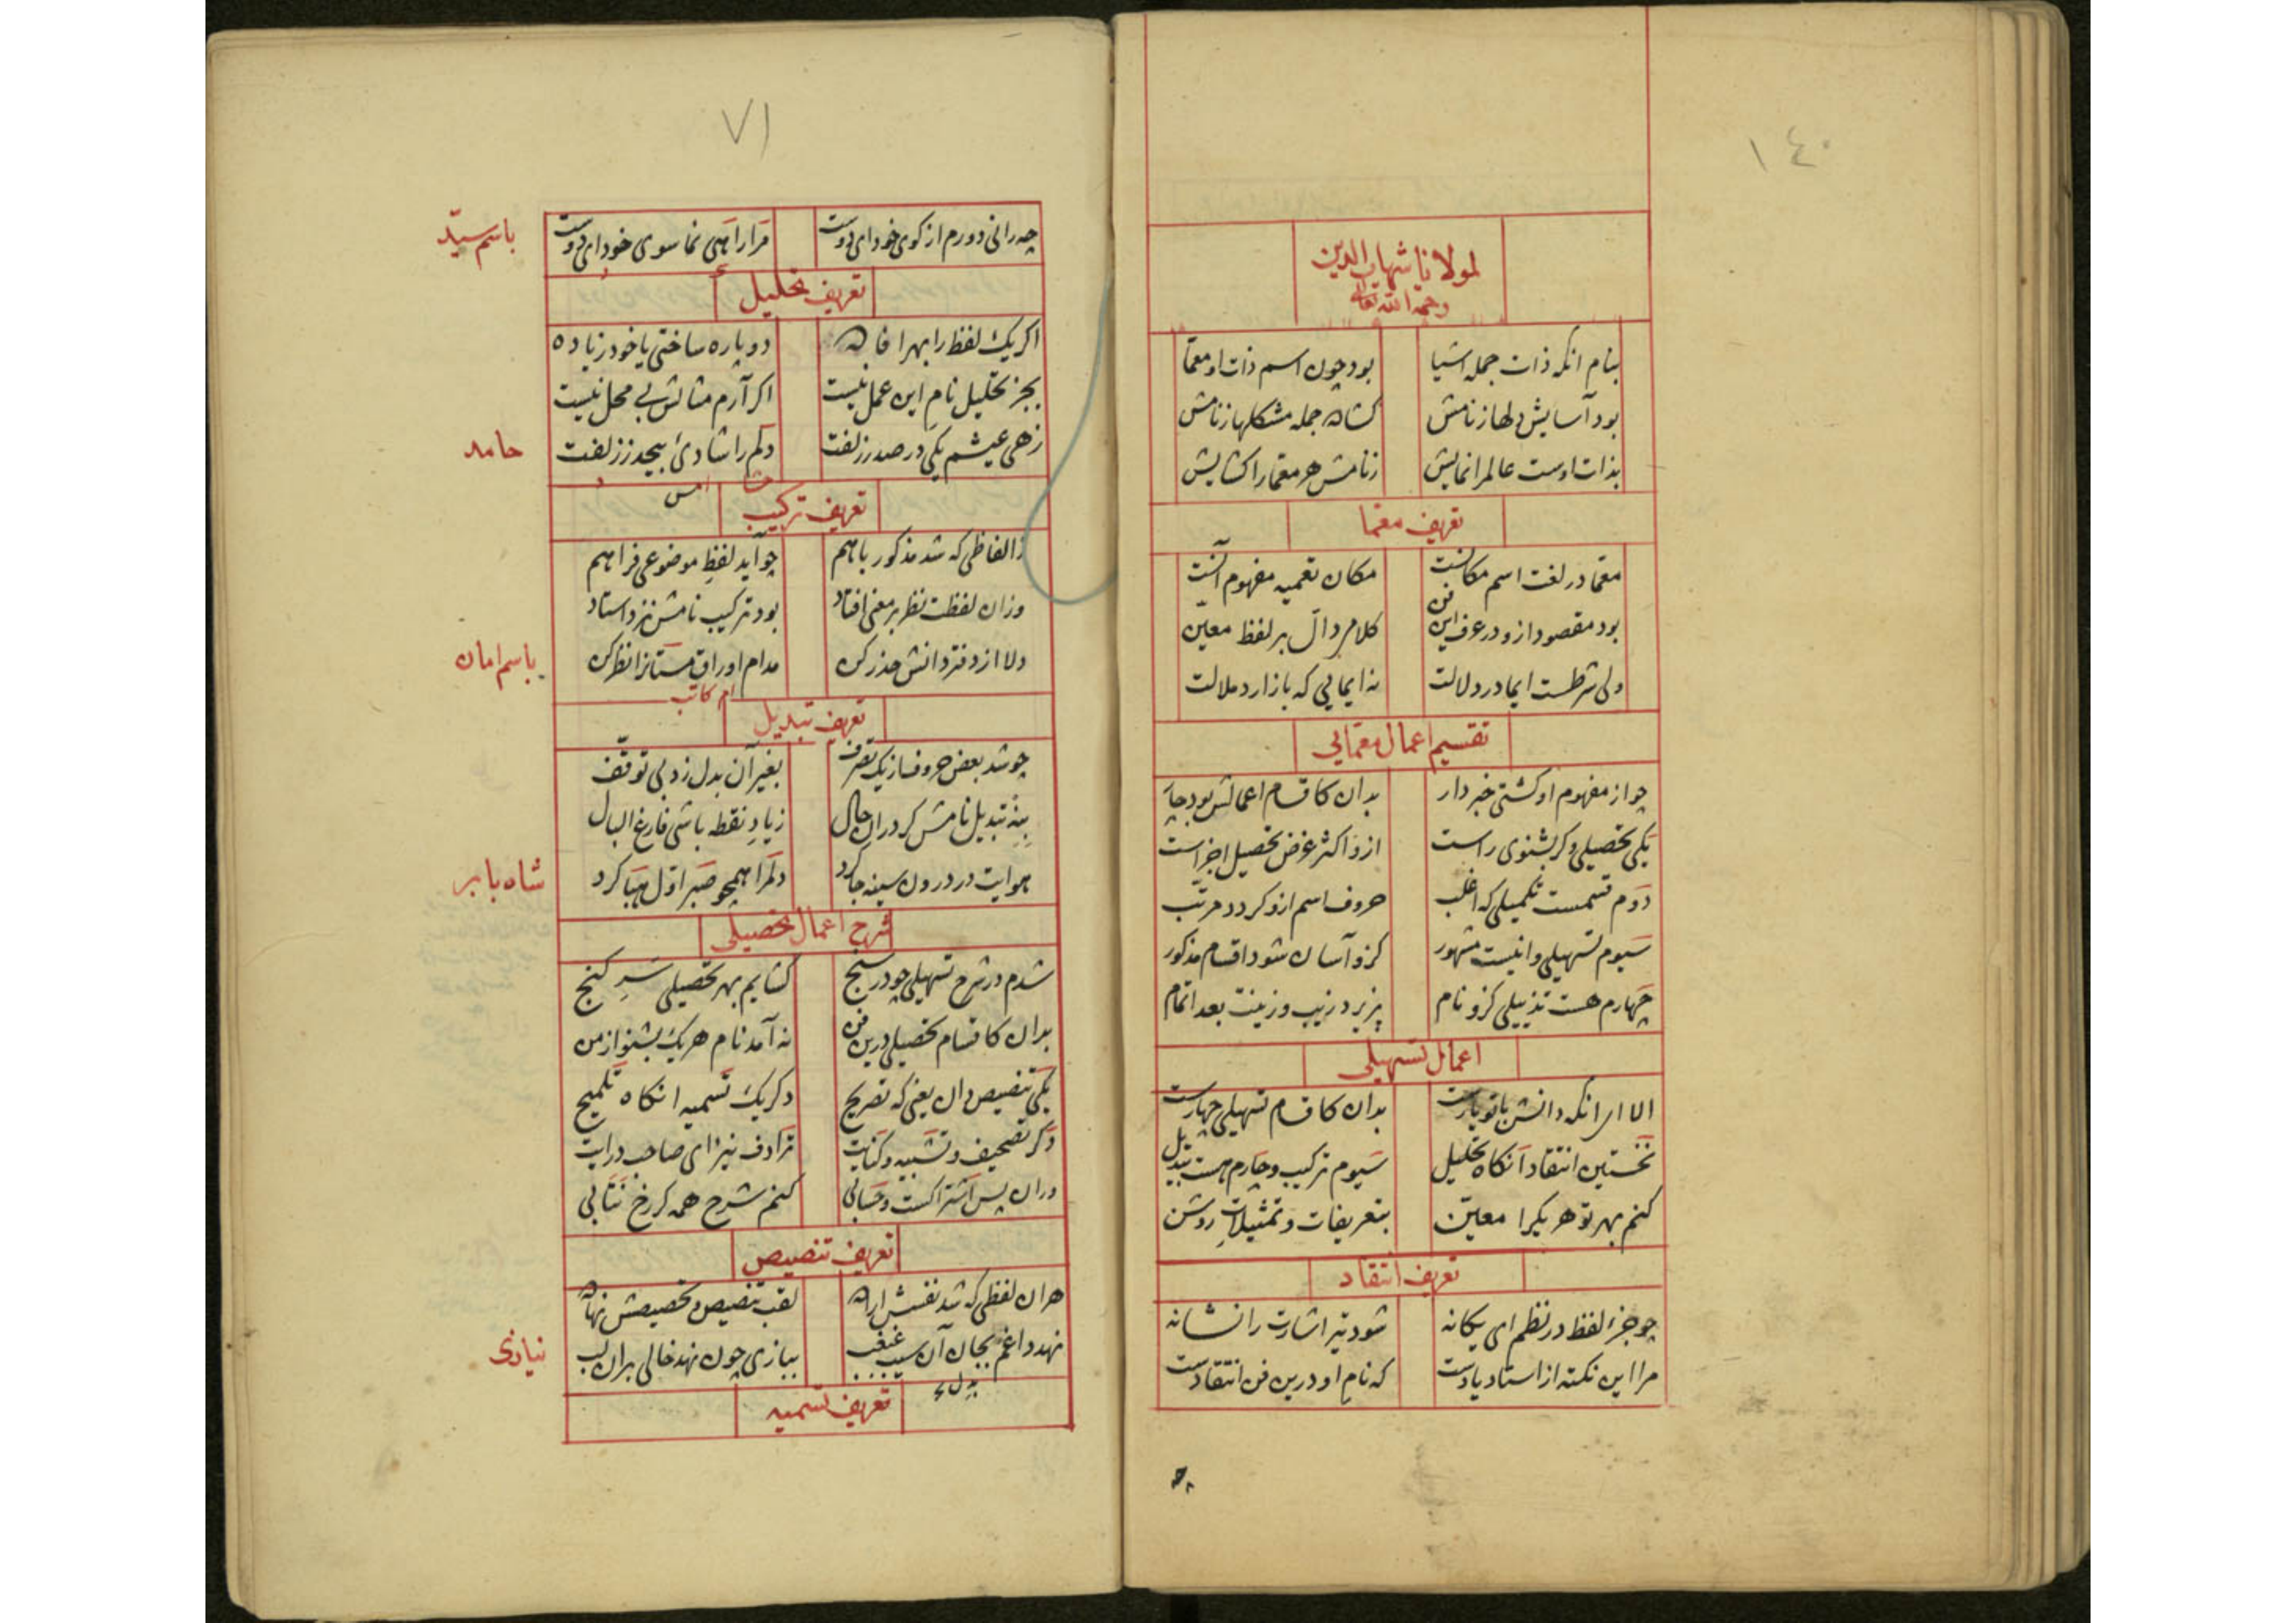 ١٤٠
لمولانا شهاب الدین
رحمه الله تعالی
بنام انکه ذات جمله اشیا بود چون اسم ذات او معمّا
بود آسایش دلها ز نامش کشاد جمله مشکلها ز نامش
بذات اوست عالم را نمایش ز نامش هر معمّا را کشایش
تعریف معمّا
معمّا در لغت اسم مکانست مکان تعمیه مفهوم آنست
بود مقصود ازو در عرف این فن کلام دالّ بر لفظ معیّن
ولی شرطست ایما در دلالت نه ایمایی که باز ارد ملالت
تقسیم اعمال معمّایی
چو از مفهوم او کشتی خبردار بدان کاقسام اعمالش بود چار
یکی تحصیلی و کر بشنوی راست ازو اکثر غرض تحصیل اجزاست
دوم قسمست تکمیلی که اغلب حروف اسم ازو کردد مرتّب
سیوم تسهیلی و اینست مشهور کزو آسان شود اقسام مذکور
چهارم هست تذییلی کزو نام پزیرد زیب و زینت بعد اتمام
اعمال تسهیلی
الا ای انکه دانش با تو یارست بدان کاقسام تسهیلی چهارست
نخستین انتقاد آنکاه تحلیل سیوم ترکیب و چارم هست تبدیل
کنم بهر تو هر یکرا معیّن بتعریفات و تمثیلات روشن
تعریف انتقاد
چو جزء لفظ در نظم ای یکانه شود تیر اشارت را نشانه
مرا این نکته از استاد یادست که نام او درین فن انتقادست
٧١
چه رانی دورم از کوی خود ای دوست مرا راهی نما سوی خود ای دوست
باسم سیّد
تعریف تحلیل
اکر یک لفظ را بهر افاده دوپاره ساختی یا خود زیاده
بجز تحلیل نام این عمل نیست اکر آرم مثالش بی محل نیست
زهی عیشم یکی در صد ز زلفت دلم را شادی بیحد ز زلفت
حامد
تعریف ترکیب
ز الفاظی که شد مذکور باهم چو آید لفظ موضوعی فراهم
وزان لفظت نظر بر معنی افتاد بود ترکیب نامش نزد استاد
دلا از دفتر دانش حذر کن مدام اوراق مستانرا نظر کن
باسم امان
ام کاتب
تعریف تبدیل
چو شد بعض حروف از یک تصرف بغیر آن بدل زد بی توقّف
بنه تبدیل نامش کر دران حال ز یاد نقطه باشی فارغ البال
هوایت در درون سینه جا کرد دلم را همچو صبر اوّل هبا کرد
شاه بابر
شرح اعمال تحصیلی
شدم در شرح تسهیلی چو در سنج کشایم بهر تحصیلی سر کنج
بدان کاقسام تحصیلی درین فن نه آمد نام هر یک بشنو از من
یکی تنصیص دان یعنی که تصریح دکر یک تسمیه انکاه تلمیح
دکر تصحیف و تشبیه و کنایت ترادف نیز ای صاحب درایت
دران پس اشتراکست و حسابی کنم شرح همه کر رخ نتابی
تعریف تنصیص
هر ان لفظی که شد نفسش اراده لقب تنصیص و تخصیصش نهاده
نهد داغم بجان آن سیب غبغب ببازی چون نهد خالی بران لب
نیازی
تعریف تسمیه